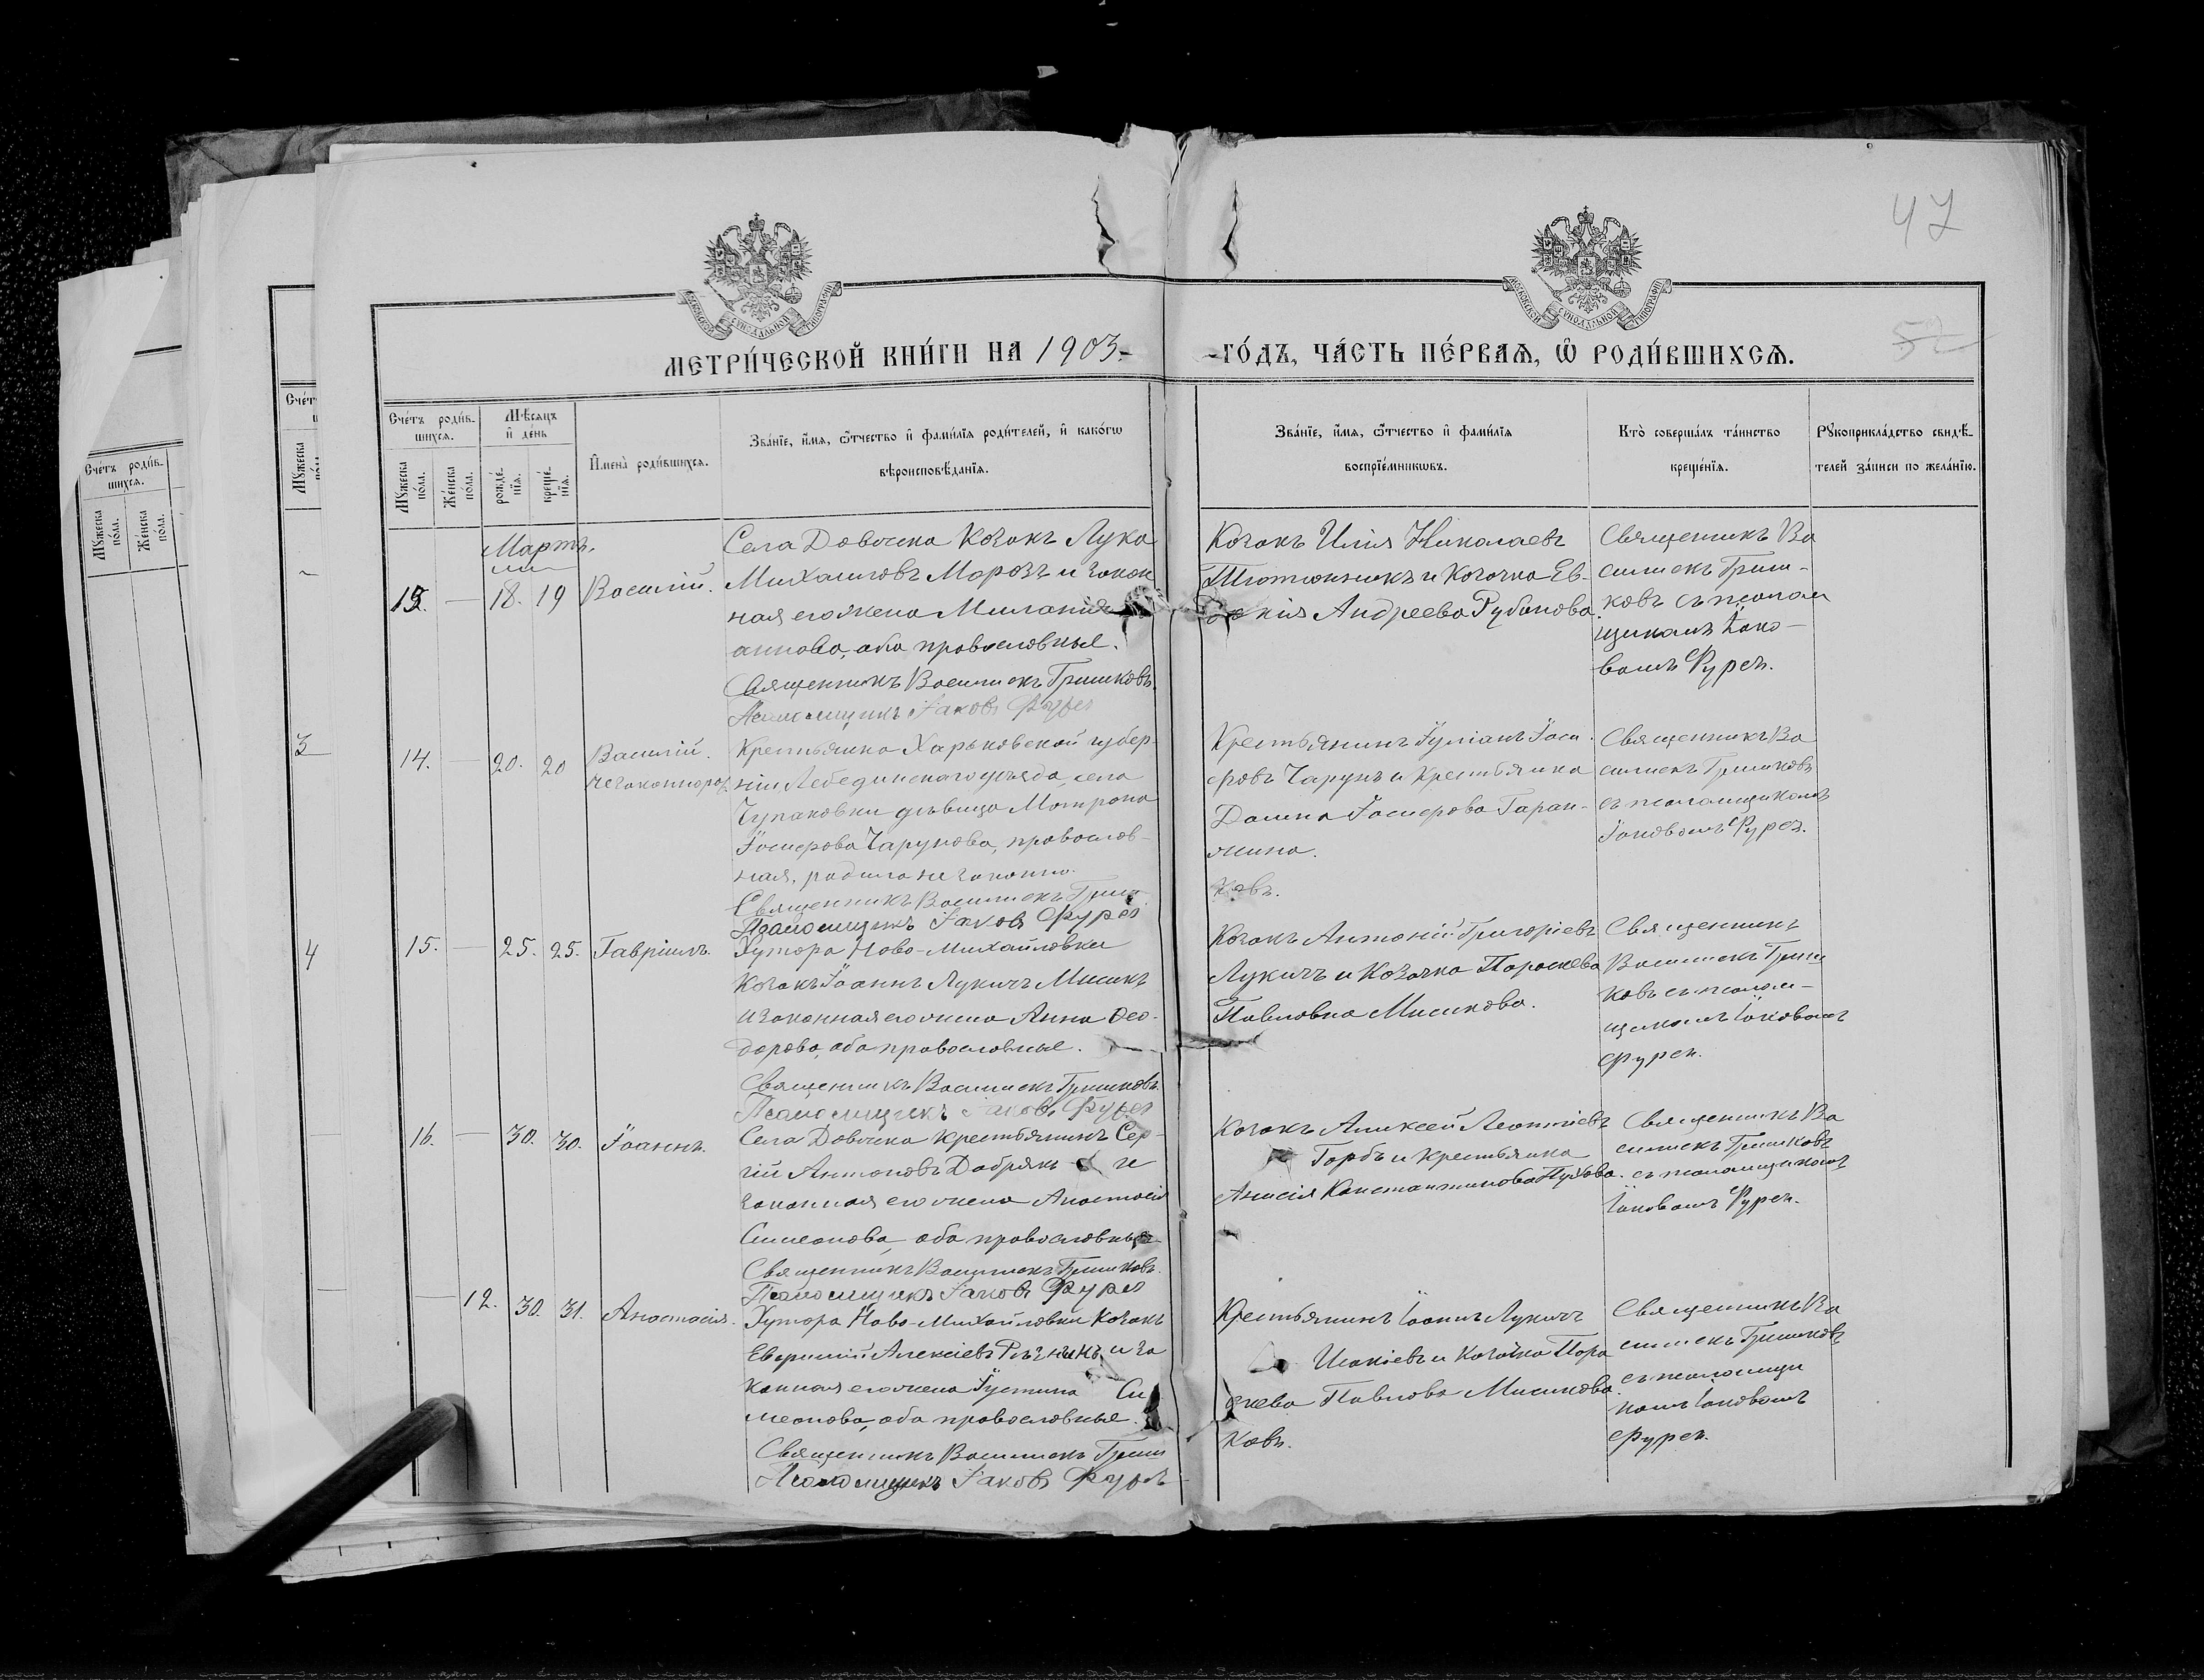 47
52
МОСКОВСКОЙ СѴНОДАЛЬНОЙ ТИПОГРАФІИ
МОСКОВСКОЙ СѴНОДАЛЬНОЙ ТИПОГРАФІИ
МЕТРИ́ЧЕСКОЙ КНИ́ГИ НА 1903.-
-ГО́ДЪ, ЧА́СТЬ ПЕ́РВАѦ, Ѽ РОДИ́ВШИХСѦ.
Сче́тъ роди́в-
шихсѧ.
Мꙋ́жеска
по́ла.
Же́нска
по́ла.
Мѣ́сѧцъ
и҆ де́нь
рожде́-
нїѧ.
креще́-
нїѧ.
И҆мена̀ роди́вшихсѧ.
Зва́нїе, и҆́мѧ, ѻ҆́тчество и҆ фами́лїѧ роди́телей, и҆ како́гѡ
вѣроисповѣ́данїѧ.
Зва́нїе, и҆́мѧ, ѻ҆́тчество и҆ фами́лїѧ
воспрїе́мникѡвъ.
Кто̀ соверша́лъ та́инство
креще́нїѧ.
Рꙋкоприкла́дство свидѣ́-
телей за́писи по жела́нїю.
Мартъ.
13. — 18. 19 Василій.
Села Довжика Козакъ Лука
Михаиловъ Морозъ и закон
ная его жена Миланія
аннова, оба православные.
Священникъ Василискъ Гришковъ.
Псаломщикъ Іаковъ Фурса
Козакъ Илія Николаевъ
Тютюнникъ и Козачка Ев-
докія Андреева Рубанова
Священникъ Ва
силискъ Гриш-
ковъ съ псалом
щикомъ Іако-
вомъ Фурсъ.
14. — 20. 20
Василій.
незаконнорож.
Крестьянка Харьковской губер-
ніи Лебединскаго уѣзда, села
Чупаховки дѣвица Матрона
Іосифова Чарунова, православ-
ная, родила незаконно.
Священникъ Василискъ Гриш-
Псаломщикъ Іаковъ Фурса
Крестьянинъ Іуліанъ Іоси-
фовъ Чарунъ и Крестьянка
Домна Іосифова Гаран-
жина.
ковъ.
Священникъ Ва
силискъ Гришковъ
съ псаломщикомъ
Іаковомъ Фурсъ.
15. — 25. 25. Гавріилъ.
Хутора Ново-Михайловки
Козакъ Іоаннъ Лукичъ Мисикъ
и законная его жена Анна Ѳео-
дорова, оба православные.
Священникъ Василискъ Гришковъ.
Псаломщикъ Іаковъ Фурса
Козакъ Антоній Григоріевъ
Лукичъ и Козачка Параскева
Павловна Мисикова.
Священникъ
Василискъ Гриш
ковъ съ псалом-
щикомъ Іаковомъ
Фурсъ.
16. — 30. 30. Іоаннъ.
Села Довжика крестьянинъ Сер-
гій Антоновъ Добрякъ и
законная его жена Анастасія
Симеонова, оба православные
Священникъ Василискъ Гришковъ.
Псаломщикъ Іаковъ Фурса
Козакъ Алексей Леонтіевъ
Горбъ и крестьянка
Анисія Константинова Пухова.
Священникъ Ва
силискъ Гришковъ
съ псаломщикомъ
Іаковомъ Фурсъ.
— 12. 30. 31. Анастасія.
Хутора Ново-Михайловки Козакъ
Евфимій Алексіевъ Рѣзникъ и за
конная его жена Іустина Си
меонова, оба православные.
Священникъ Василискъ Гриш
Псаломщикъ Іаковъ Фурса
Крестьянинъ Іоаннъ Лукичъ
Исакіевъ и Козачка Пара
скева Павлова Мисикова
ковъ.
Священникъ Ва
силискъ Гришковъ
съ псаломщи
комъ Іаковомъ
Фурсъ.
3
4